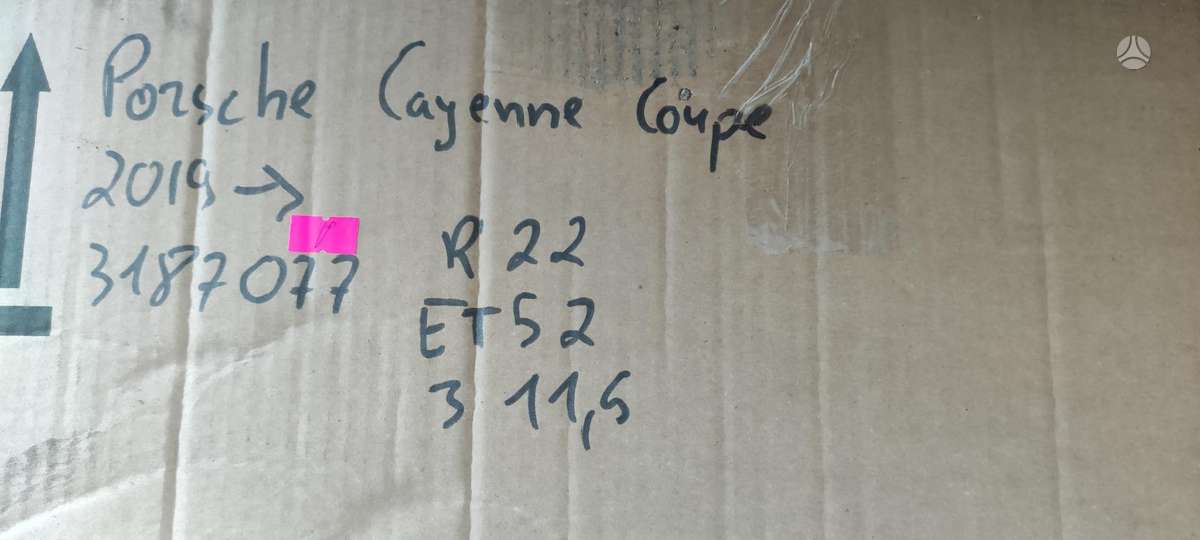 Porsche Cayenne Coupe
2019 →
3187077
R 22
ET 52
3 11,5